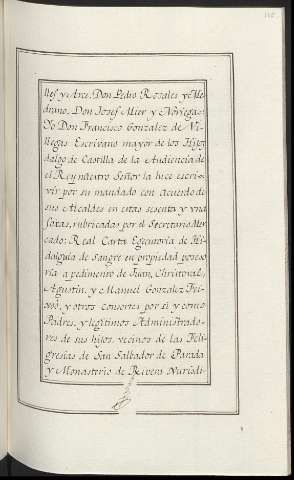 nes y Arce. Don Pedro Rosales y Me
drano. Don Josef Mier y Noriega.
Yo Don Francisco Gonzalez de Vi
llegas Escribano mayor de los Hijos
dalgo de Castilla de la Audiencia de
el Rey nuestro Señor la hice escri-
vir por su mandado con acuerdo de
sus Alcaldes en estas sesenta y una
foxas, rubricadas por el Secretario Mer
cado: Real Carta Egecutoria de Hi
dalguia de Sangre en propiedad poseso
ria à pedimento de Juan, Christoval,
Agustin, y Manuel Gonzalez
y otros Consortes por sí y como
Padres, y legitimos Administrado-
res de sus hijos, vecinos de las Feli
gresias de San Salbador de Parada
y Monasterio de Rivera